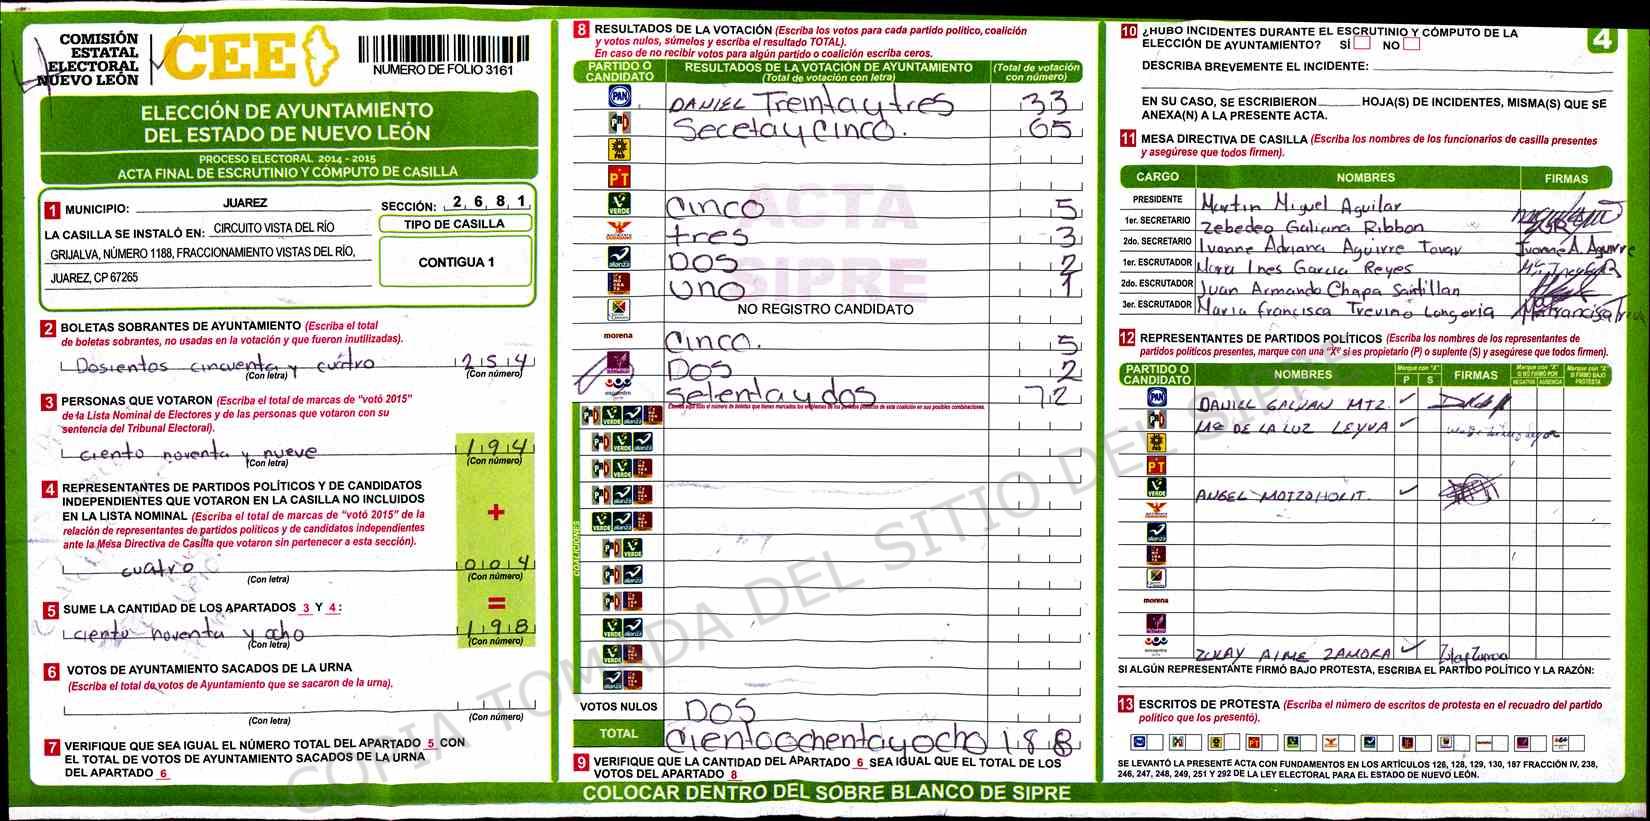 COMISIÓN
ESTATAL
ELECTORAL
NUEVO LEÓN
CEE
NUMERO DE FOLIO 3161
ELECCIÓN DE AYUNTAMIENTO
DEL ESTADO DE NUEVO LEÓN
PROCESO ELECTORAL 2014 - 2015
ACTA FINAL DE ESCRUTINIO Y CÓMPUTO DE CASILLA
1 MUNICIPIO: JUAREZ SECCIÓN: 2 6 8 1
LA CASILLA SE INSTALÓ EN: CIRCUITO VISTA DEL RÍO
GRIJALVA, NÚMERO 1188, FRACCIONAMIENTO VISTAS DEL RÍO,
JUAREZ, CP 67265
TIPO DE CASILLA
CONTIGUA 1
2 BOLETAS SOBRANTES DE AYUNTAMIENTO (Escriba el total
de boletas sobrantes, no usadas en la votación y que fueron inutilizadas).
Dosientos cincuenta y cuatro 2 5 4
(Con letra) (Con número)
3 PERSONAS QUE VOTARON (Escriba el total de marcas de "votó 2015"
de la Lista Nominal de Electores y de las personas que votaron con su
sentencia del Tribunal Electoral).
ciento noventa y nueve 1 9 4
(Con letra) (Con número)
4 REPRESENTANTES DE PARTIDOS POLÍTICOS Y DE CANDIDATOS
INDEPENDIENTES QUE VOTARON EN LA CASILLA NO INCLUIDOS
EN LA LISTA NOMINAL (Escriba el total de marcas de "votó 2015" de la
relación de representantes de partidos políticos y de candidatos independientes
ante la Mesa Directiva de Casilla que votaron sin pertenecer a esta sección).
+
cuatro 0 0 4
(Con letra) (Con número)
=
5 SUME LA CANTIDAD DE LOS APARTADOS 3 Y 4:
ciento noventa y ocho 1 9 8
(Con letra) (Con número)
6 VOTOS DE AYUNTAMIENTO SACADOS DE LA URNA
(Escriba el total de votos de Ayuntamiento que se sacaron de la urna).
(Con letra) (Con número)
7 VERIFIQUE QUE SEA IGUAL EL NÚMERO TOTAL DEL APARTADO 5 CON
EL TOTAL DE VOTOS DE AYUNTAMIENTO SACADOS DE LA URNA
DEL APARTADO 6
8 RESULTADOS DE LA VOTACIÓN (Escriba los votos para cada partido político, coalición
y votos nulos, súmelos y escriba el resultado TOTAL).
En caso de no recibir votos para algún partido o coalición escriba ceros.
PARTIDO O CANDIDATO RESULTADOS DE LA VOTACIÓN DE AYUNTAMIENTO (Total de votación con letra) (Total de votación con número)
PAN DANIEL Treintaytres 33
PRI Secetaycinco. 65
PRD
PT
VERDE Cinco 5
tres 3
alianza DOS 2
uno 1
NO REGISTRO CANDIDATO
morena Cinco. 5
DOS 2
encuentro Setentaydos 72
COALICIONES
VOTOS NULOS DOS
TOTAL Cientoochentayocho 188
9 VERIFIQUE QUE LA CANTIDAD DEL APARTADO 6 SEA IGUAL QUE EL TOTAL DE LOS
VOTOS DEL APARTADO 8
ACTA
SIPRE
COPIA TOMADA DEL SITIO DEL SIPRE
COLOCAR DENTRO DEL SOBRE BLANCO DE SIPRE
4
10 ¿HUBO INCIDENTES DURANTE EL ESCRUTINIO Y CÓMPUTO DE LA
ELECCIÓN DE AYUNTAMIENTO? SÍ NO
DESCRIBA BREVEMENTE EL INCIDENTE:
EN SU CASO, SE ESCRIBIERON HOJA(S) DE INCIDENTES, MISMA(S) QUE SE
ANEXA(N) A LA PRESENTE ACTA.
11 MESA DIRECTIVA DE CASILLA (Escriba los nombres de los funcionarios de casilla presentes
y asegúrese que todos firmen).
CARGO NOMBRES FIRMAS
PRESIDENTE Martin Miguel Aguilar
1er. SECRETARIO Zebedeo Galiana Ribbon
2do. SECRETARIO Ivonne Adriana Aguirre Tovar Ivonne A. Aguirre
1er. ESCRUTADOR Maria Ines Garcia Reyes
2do. ESCRUTADOR Juan Armando Chapa Santillan
3er. ESCRUTADOR Maria Francisca Trevino Longoria
12 REPRESENTANTES DE PARTIDOS POLÍTICOS (Escriba los nombres de los representantes de
partidos politicos presentes, marque con una "X" si es propietario (P) o suplente (S) y asegúrese que todos firmen).
PARTIDO O CANDIDATO NOMBRES Marque con "X" P S FIRMAS Marque con "X" SI NO FIRMÓ POR NEGATIVA AUSENCIA Marque con "X" SI FIRMÓ BAJO PROTESTA
PAN DANIEL GALVAN MTZ.
PRI Ma DE LA LUZ LEYVA
PRD
PT
VERDE ANGEL
alianza
morena
encuentro ZULAY AIME ZAMORA
SI ALGÚN REPRESENTANTE FIRMÓ BAJO PROTESTA, ESCRIBA EL PARTIDO POLÍTICO Y LA RAZÓN:
13 ESCRITOS DE PROTESTA (Escriba el número de escritos de protesta en el recuadro del partido
político que los presentó).
SE LEVANTÓ LA PRESENTE ACTA CON FUNDAMENTOS EN LOS ARTÍCULOS 126, 128, 129, 130, 187 FRACCIÓN IV, 238,
246, 247, 248, 249, 251 Y 292 DE LA LEY ELECTORAL PARA EL ESTADO DE NUEVO LEÓN.